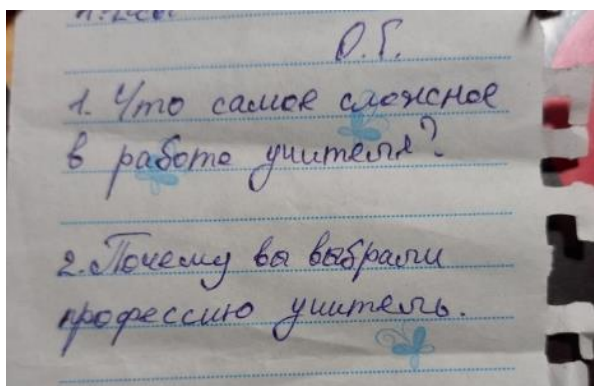 О.Г.
1. Что самое сложное
в работе учителя?
2. Почему вы выбрали
профессию учитель.